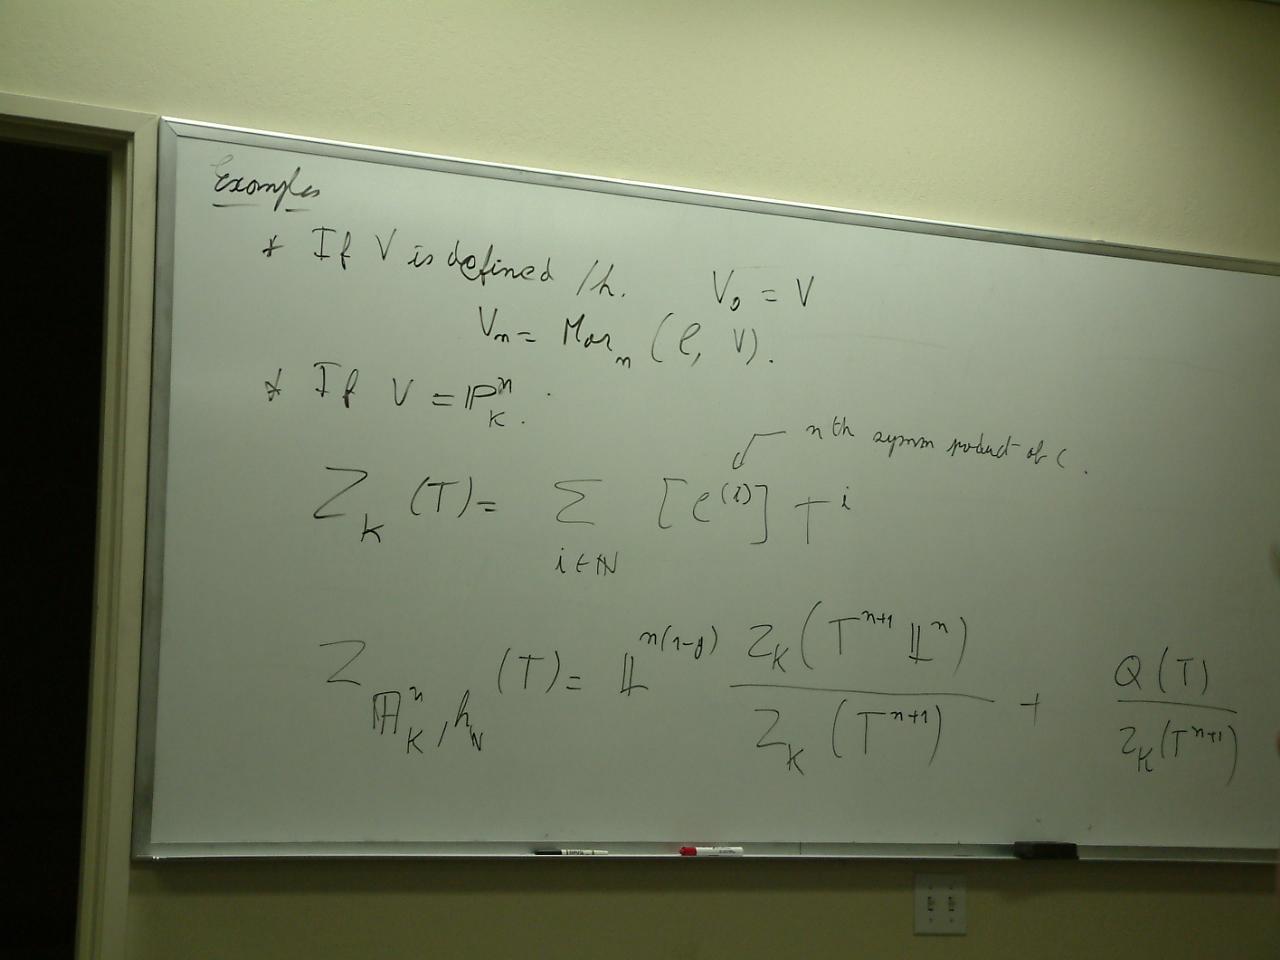 Examples
* If V is defined /k. V₀ = V
Vₙ = Morₙ (𝒞, V).
* If V = ℙⁿ_K.
nth symm product of C.
Z_K (T) = Σ_{i∈ℕ} [𝒞^{(i)}] T^i
Z_{ℙⁿ_K, h_N} (T) = 𝕃^{n(1-g)} Z_K(T^{n+1} 𝕃ⁿ) / Z_K (T^{n+1}) + Q(T) / Z_K(T^{n+1})